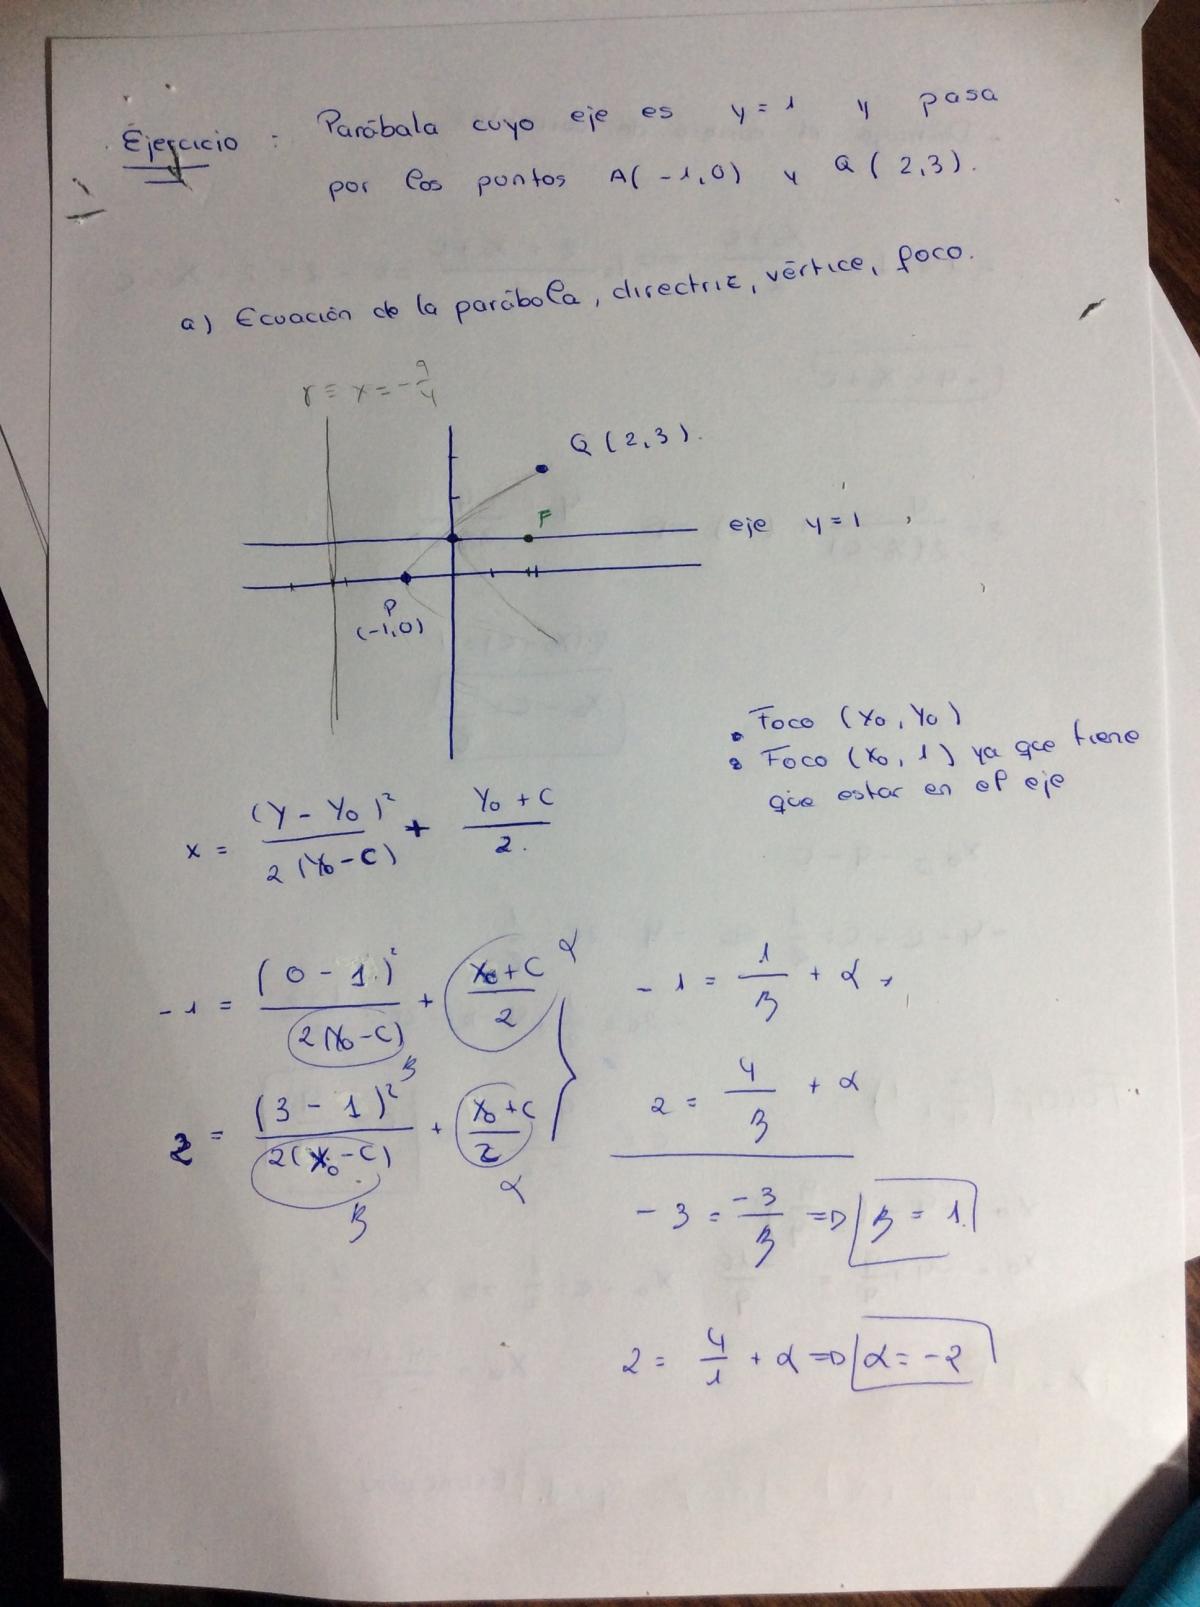 Ejercicio : Parábala cuyo eje es y = 1 y pasa
por los puntos A(-1,0) y Q(2,3).
a) Ecuación de la parábola, directriz, vértice, foco.
r ≡ x = -9/4
Q(2,3).
F
eje y = 1
P
(-1,0)
• Foco (x₀, y₀)
• Foco (x₀, 1) ya que tiene
que estar en el eje
x = (y - y₀)² / 2(y₀ - c) + (y₀ + c) / 2.
-1 = (0 - 1)² / 2(x₀ - c) + (x₀ + c) / 2 α
β
2 = (3 - 1)² / 2(x₀ - c) + (x₀ + c) / 2
β α
-1 = 1/β + α
2 = 4/β + α
-3 = -3/β => β = 1
2 = 4/1 + α => α = -2